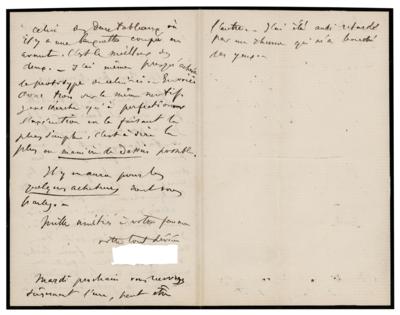 Celui des deux tableaux où
il y a une baguette coupée en
avant. C'est le meilleur des
deux. – J'ai même presque achevé
le prototype de celui-ci.
avec trois sur le même motif
je ne cherche qu'à perfectionner
l'exécution en la faisant la
plus simple, c'est à dire la
plus en manière de dessin possible.
Il y en aura pour les
quelques acheteurs dont vous
parlez. –
Mille amitiés à votre femme
votre tout dévoué
Mardi prochain vous recevrez
sûrement l'une, peut être
l'autre. – J'ai été
par un rhume qui m'a
des yeux –